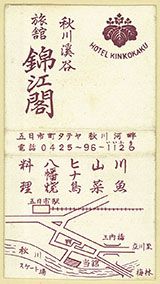 秋川溪谷
旅舘
錦江閣
HOTEL KINKOKAKU
五日市町タテヤ 秋川河畔
電話 0425-96-1126
川魚
山菜
ヒナ鳥
八幡焼
料理
五日市駅
秋川
スケート場
当舘
立川至
梅林